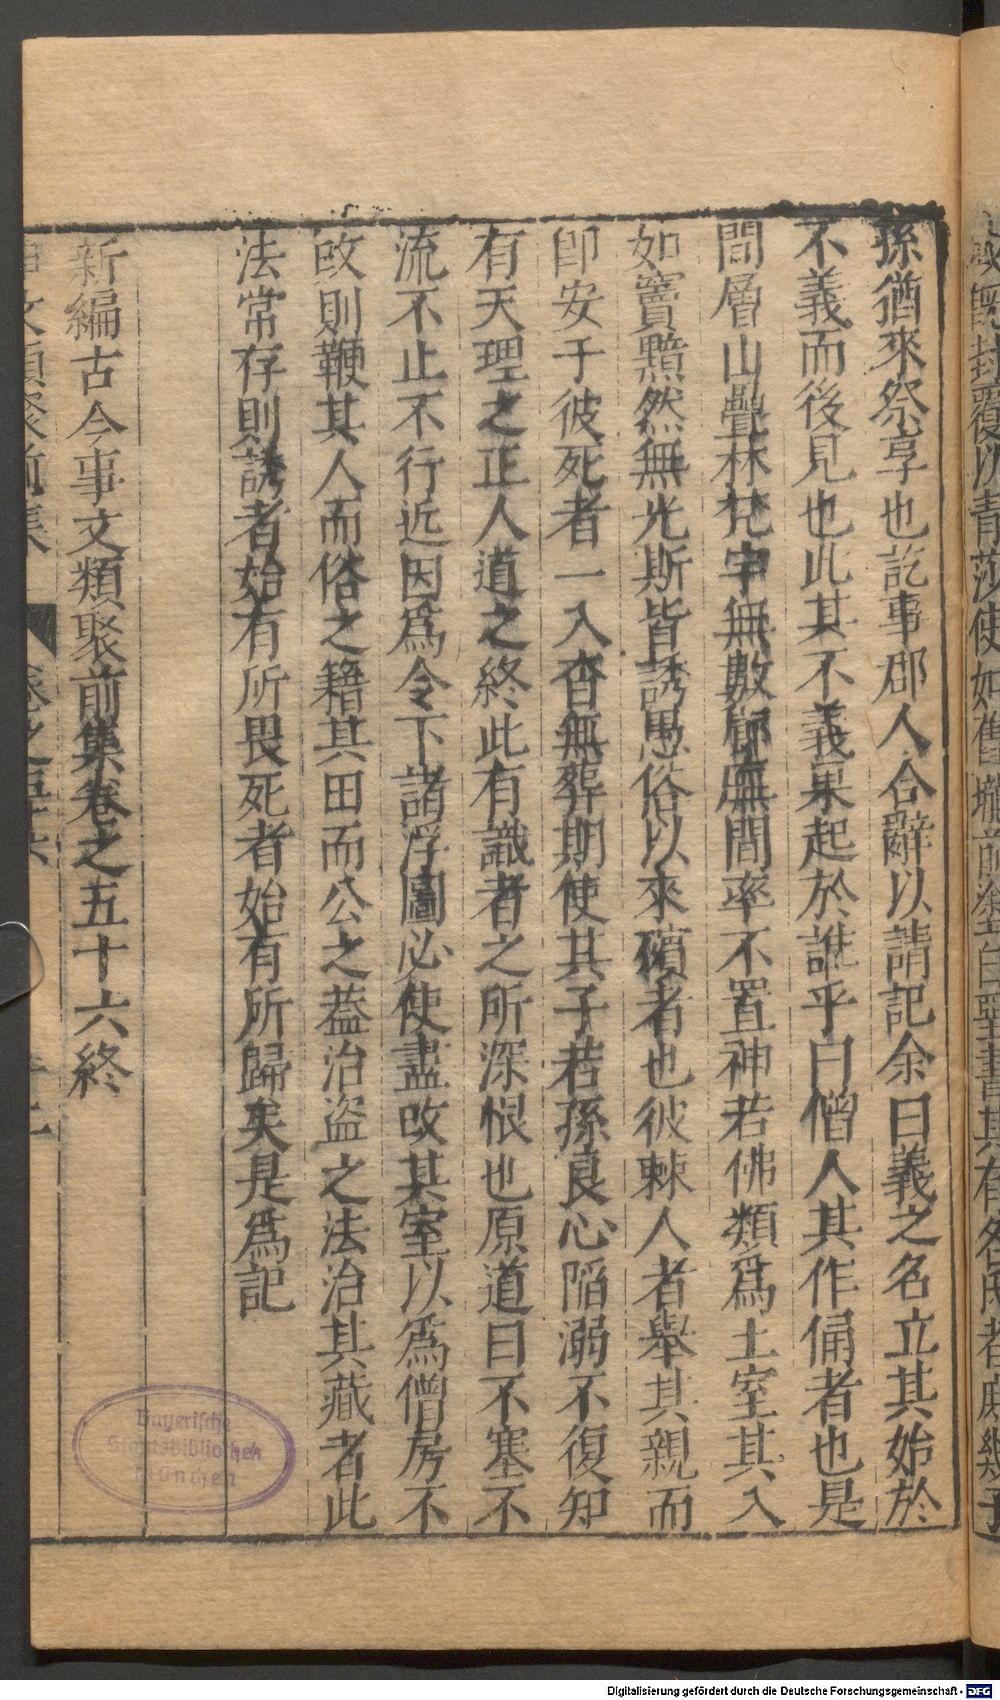 孫猶來祭享也訖事郡人合辭以請記余曰義之名立其始於
不義而後見也此其不義果起於誰乎曰僧人其作俑者也是
間層山疊林梵宇無數廊廡間率不置神若佛類爲土室其入
如竇黯然無光斯皆誘愚俗以來殯者也彼棘人者舉其親而
卽安于彼死者一入杳無葬期使其子若孫良心陷溺不復知
有天理之正人道之終此有識者之所深恨也原道曰不塞不
流不止不行近因爲令下諸浮圖必使盡改某室以爲僧房不
改則鞭其人而俗之籍其田而公之葢治盜之法治其藏者此
法常存則誘者始有所畏死者始有所歸矣是爲記
新編古今事文類聚前集卷之五十六終
Bayerische
Staatsbibliothek
München
Digitalisierung gefördert durch die Deutsche Forschungsgemeinschaft - DFG